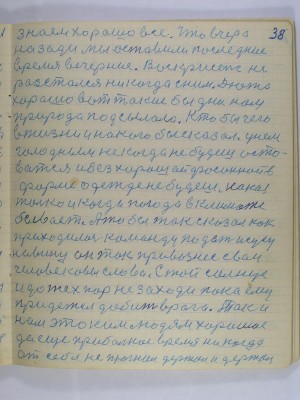 38
знаем хорошо все. Что вчера
назади мы оставили последнее
время вечернее. Воскриснее не
разстался никогда с ним. А но то
хорошо вот такие бы дни нам
природа подсылала. Кто бы чего
в жизни и какого бы сказал. умом
голодным некогда не будеш оста-
ватся и без хорошой
форме одежде не будеш. какая
только и когда погода в климате
бывает. А то бы так сказал как
приходилос команду подат и суху
он так привезнес свои
человеком слова. Стой солнце
и до тех пор не заходи пока ему
придется добит врага. Так и
нам этоким людям хорошое
да еще прибалное время никогда
от себя не прогнал держал и держал